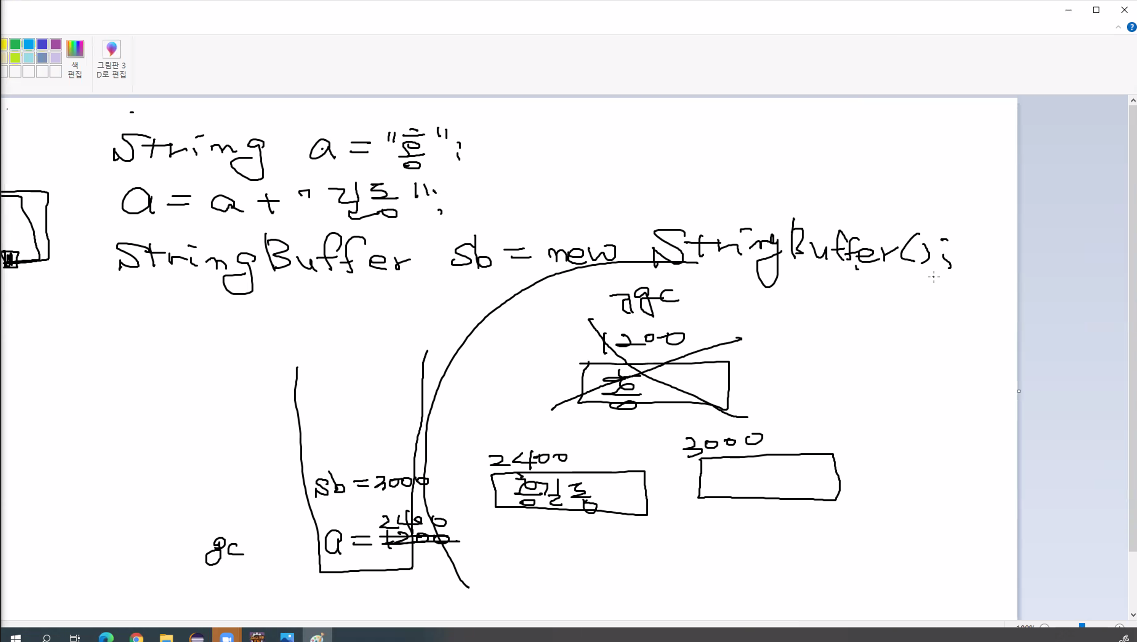 색
편집
그림판 3
D로 편집
String a = "홍";
a = a + "길동";
StringBuffer sb = new StringBuffer();
gc
1200
홍
2400
홍길동
3000
sb = 3000
2400
a = 1200
gc